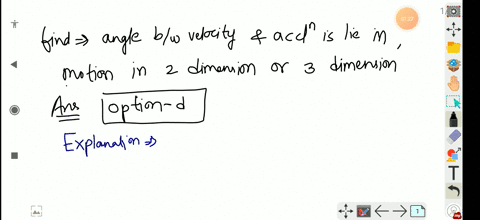 find ⇒ angle b/w velocity & accl^n is lie in,
motion in 2 dimension or 3 dimension
Ans option-d
Explanation ⇒